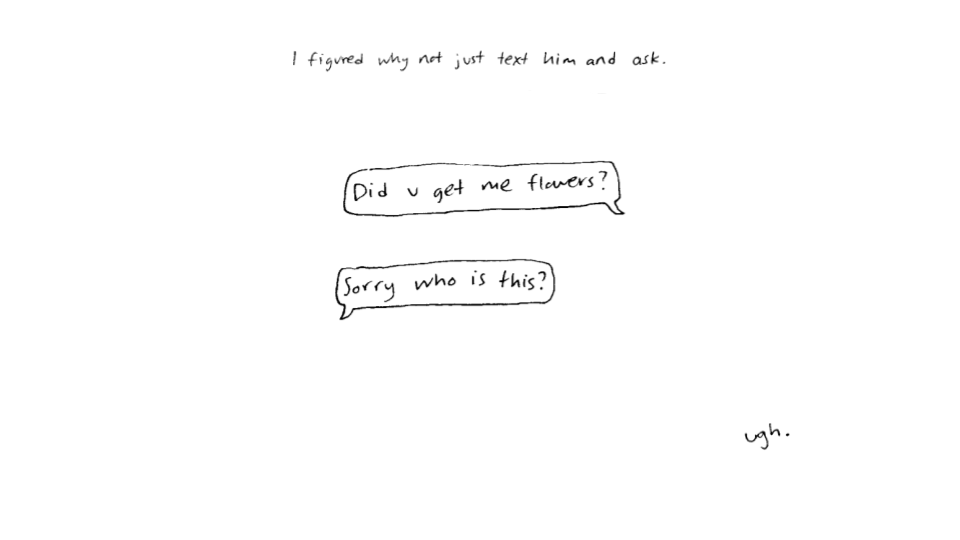 I figured why not just text him and ask.
Did u get me flowers?
Sorry who is this?
ugh.